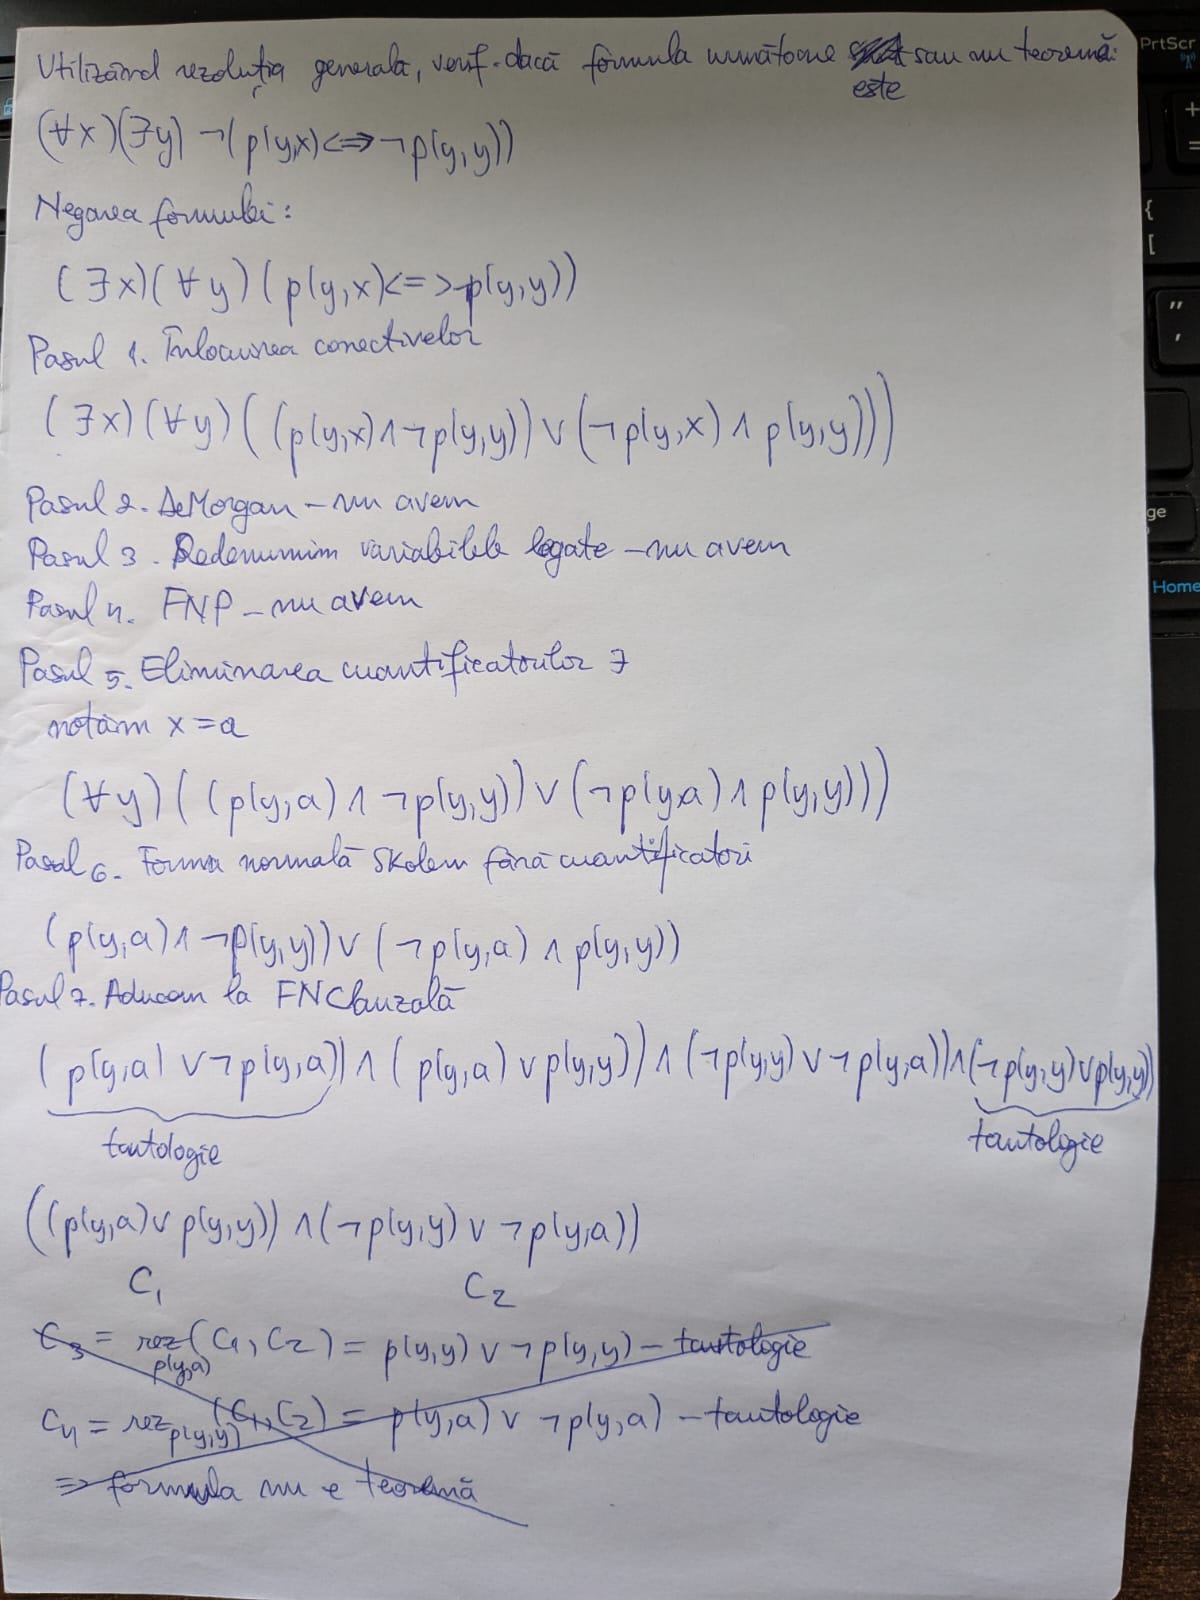 Utilizând rezoluția generală, verif. dacă formula următoare este sau nu teoremă:
(∀x)(∃y) ¬(p(y,x)<=>¬p(y,y))
Negarea formulei:
(∃x)(∀y)(p(y,x)<=>¬p(y,y))
Pasul 1. Înlocuirea conectivelor
(∃x)(∀y)((p(y,x)∧¬p(y,y))∨(¬p(y,x)∧p(y,y)))
Pasul 2. DeMorgan – nu avem
Pasul 3. Redenumim variabilele legate – nu avem
Pasul 4. FNP – nu avem
Pasul 5. Eliminarea cuantificatorilor ∃
notăm x=a
(∀y)((p(y,a)∧¬p(y,y))∨(¬p(y,a)∧p(y,y)))
Pasul 6. Forma normală Skolem fără cuantificatori
(p(y,a)∧¬p(y,y))∨(¬p(y,a)∧p(y,y))
Pasul 7. Aducem la FNClauzală
(p(y,a)∨¬p(y,a))∧(p(y,a)∨p(y,y))∧(¬p(y,y)∨¬p(y,a))∧(¬p(y,y)∨p(y,y))
tautologie tautologie
((p(y,a)∨p(y,y))∧(¬p(y,y)∨¬p(y,a))
C1 C2
C3 = rez p(y,a) (C1,C2) = p(y,y)∨¬p(y,y) – tautologie
C4 = rez p(y,y) (C1,C2) = p(y,a)∨¬p(y,a) – tautologie
=> formula nu e teoremă
PrtScr
+
=
{
[
"
'
Home